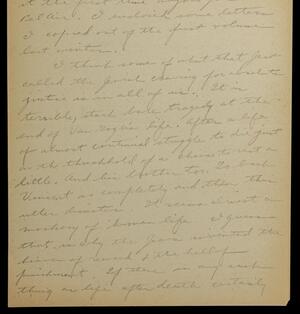 at the first time
Bel Air. I enclosed some letters
I copied out of the first volume
last winter.
I think some of what that Jew
called the Jewish craving for absolute
justice is in all of us. It is
terrible, stark bare tragedy at the
end of Van Gogh's life. After a life
of almost continual struggle to die just
on the threshhold of a chance to rest a
little. And his brother too. To back
Vincent so completely and then, this
utter disaster. It seems almost a
mockery of human life. I guess
that is why the Jews invented the
heaven of reward & the hell of
punishment. If there is any such
thing as life after death certainly